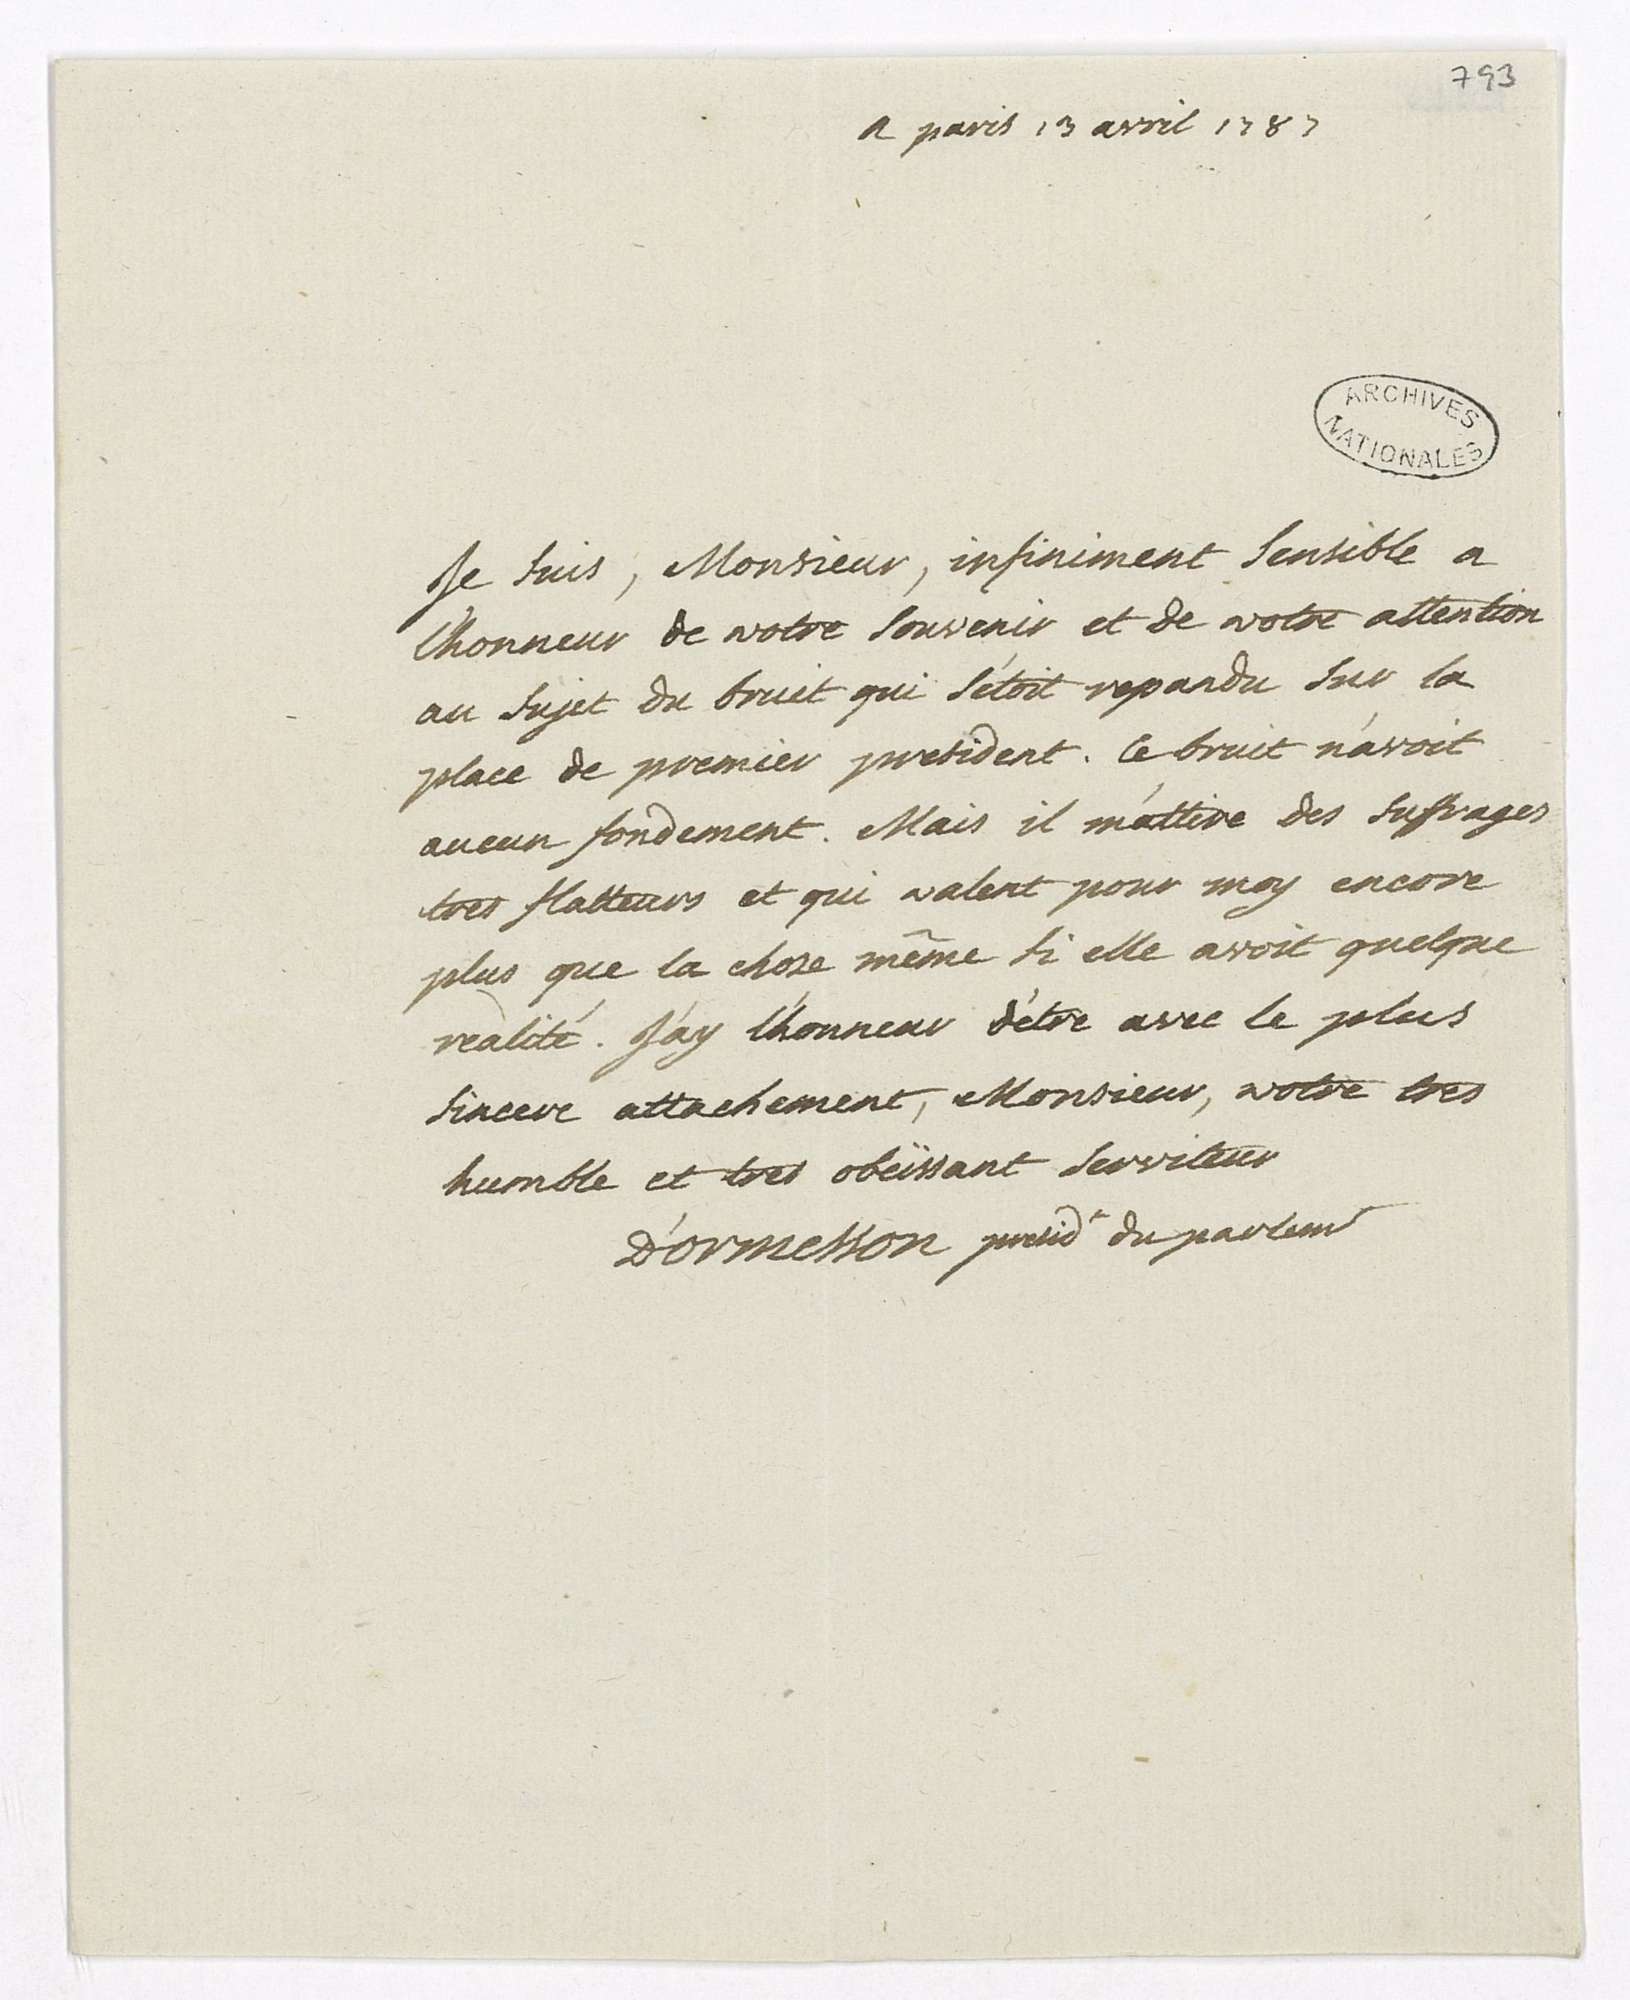 793
a paris 13 avril 1787
ARCHIVES
NATIONALES
Je suis, Monsieur, infiniment sensible a
l'honneur de votre souvenir et de votre attention
au sujet du bruit qui s'étoit repandu sur la
place de premier president. Ce bruit n'avoit
aucun fondement. Mais il m'attire des suffrages
tres flatteurs et qui valent pour moy encore
plus que la chose même si elle avoit quelque
realité. J'ay l'honneur d'étre avec le plus
sincere attachement, Monsieur, votre tres
humble et tres obeïssant serviteur
D'ormesson presid^t du parlem^t